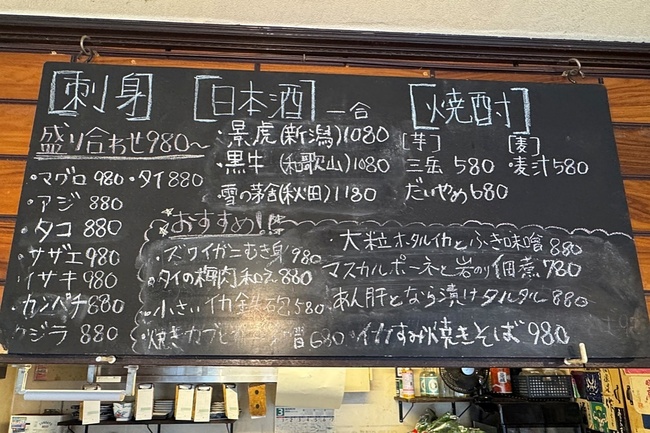 [刺身]
盛り合わせ980〜
・マグロ 980 ・タイ 880
・アジ 880
・タコ 880
・サザエ 980
イサキ 980
カンパチ 880
クジラ 880
[日本酒] 一合
・景虎(新潟)1080
・黒牛(和歌山)1080
・雪の茅舎(秋田)1180
[焼酎]
[芋]
三岳 580
だいやめ 680
[麦]
・麦汁 580
おすすめ!
・ズワイガニむき身 980
・タイの梅肉和え 880
・小さいイカ鉄砲 580
・焼きカブと 680
・大粒ホタルイカとふき味噌 880
マスカルポーネと岩のり佃煮 780
あん肝となら漬けタルタル 880
・イカすみ焼きそば 980